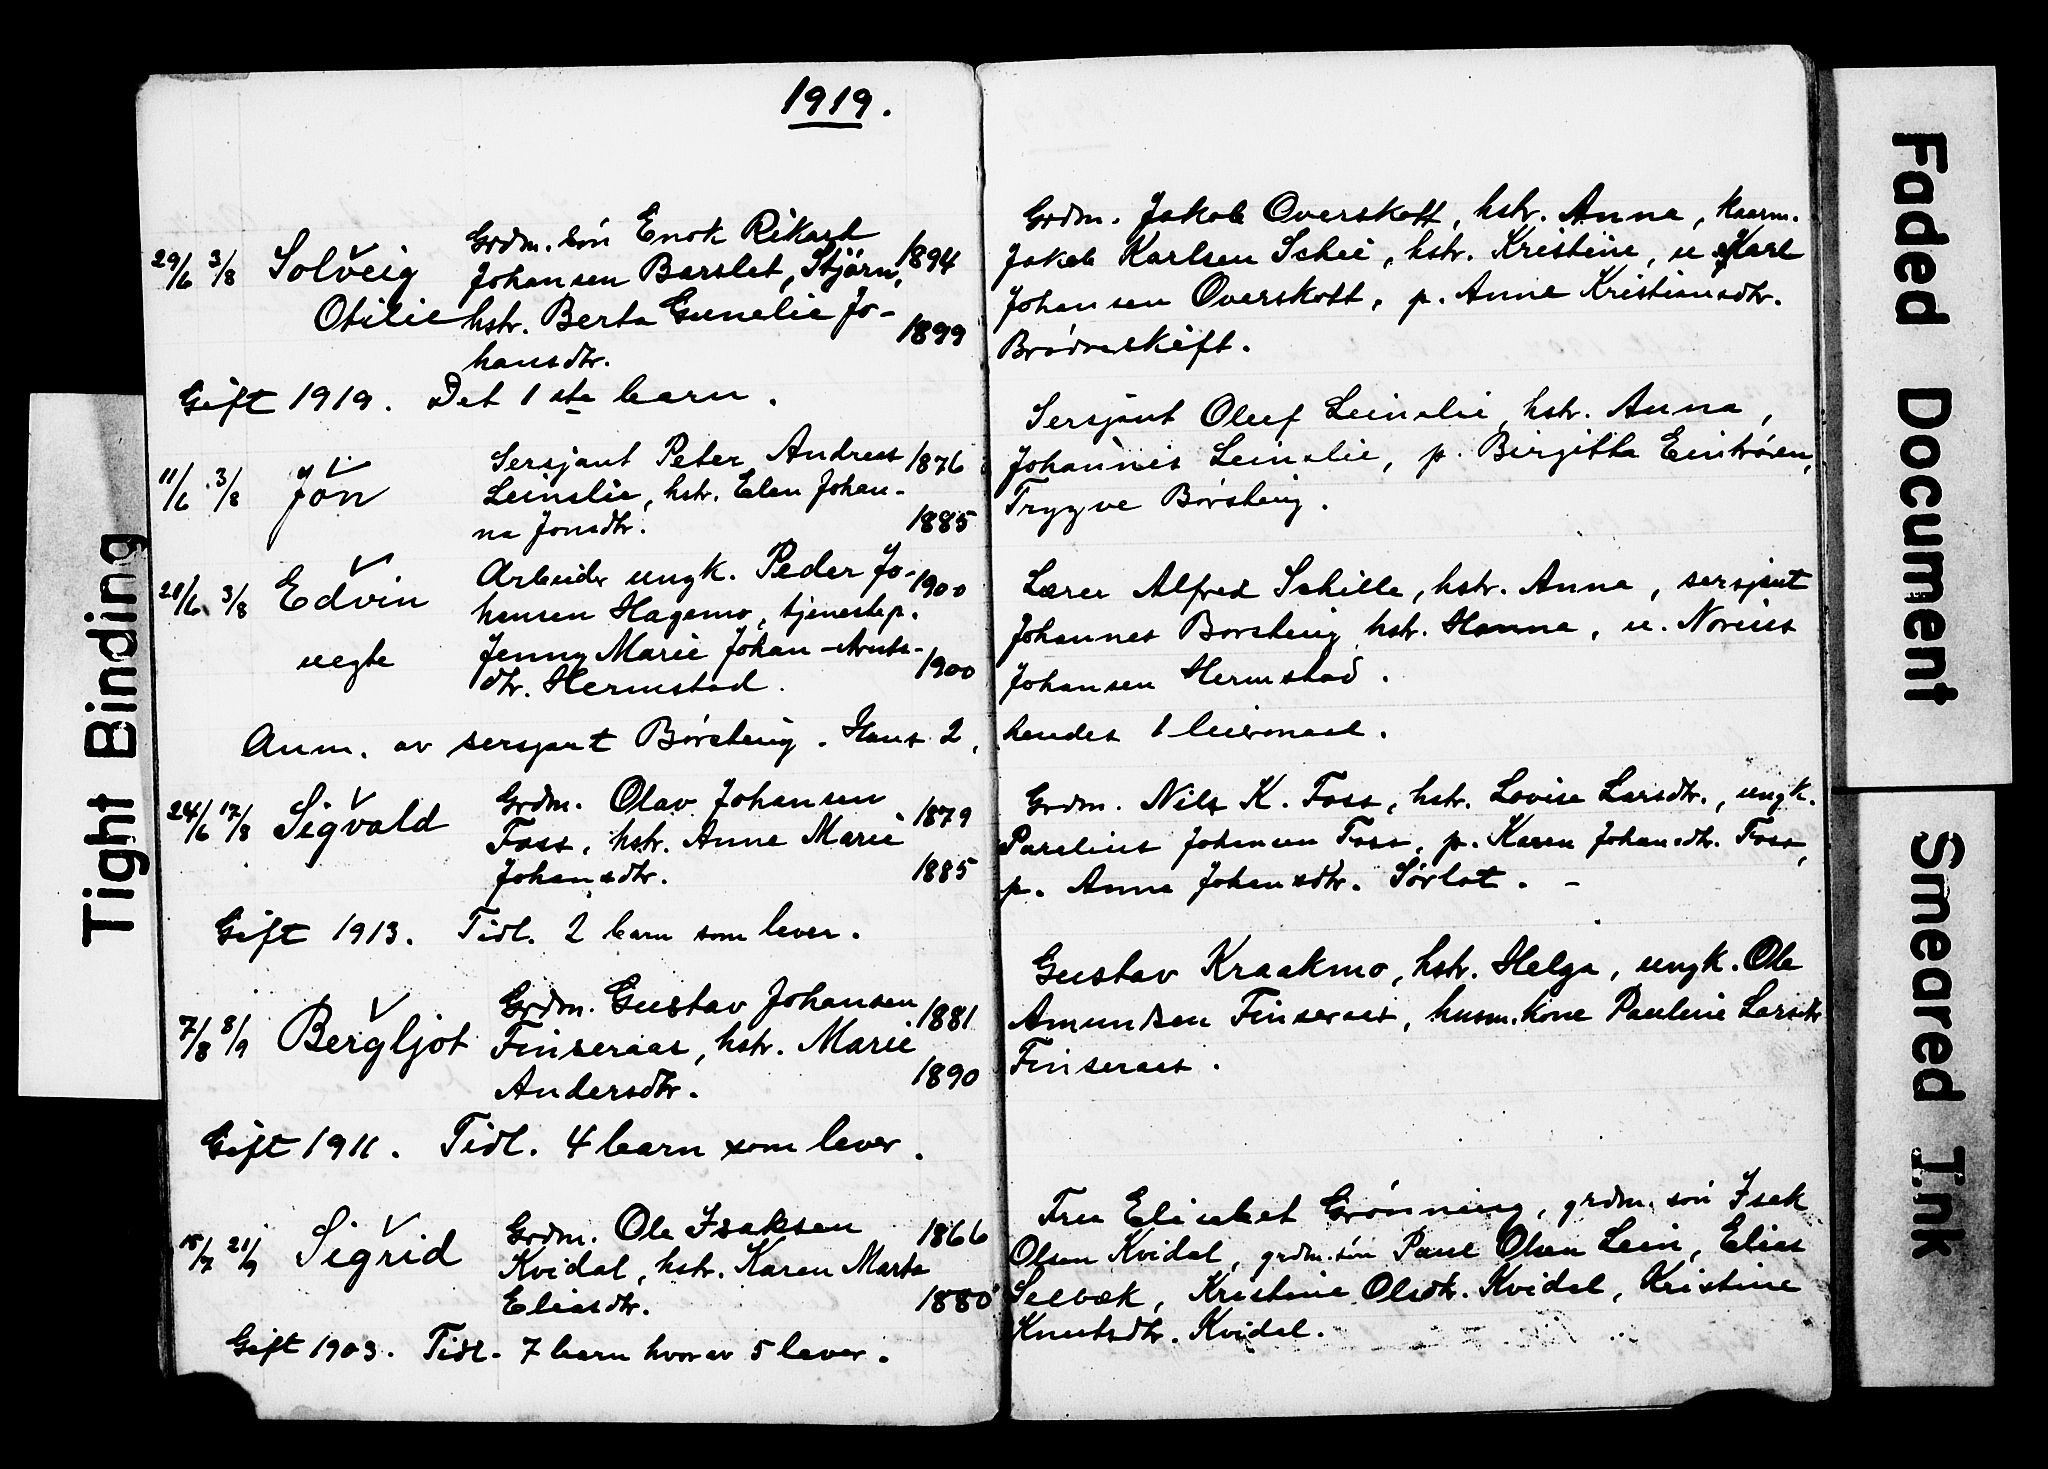 1919.
29/6 3/8 Solveig Otilie
Grdm. søn Enok Rikard 1894
Johansen Barslet, Stjørn,
hstr. Berta Gunelie Jo- 1899
hansdtr.
Gift 1919. Det 1ste barn.
Grdm. Jakob Overskott, hstr. Anna, kaarm.
Jakob Karlsen Schei, hstr. Kristine, u Karl
Johansen Overskott, p. Anne Kristiansdtr.
Brødreskift.
11/6 3/8 Jon
Sersjant Peter Andreas 1876
Leinslie, hstr. Elen Johan-
na Jonsdtr. 1885
Sersjant Oluf Leinslie, hstr. Anna,
Johannes Leinslie, p. Birgitta
Trygve Børsting.
21/6 3/8 Edvin
uegte
Arbeider ungk. Peder Jo- 1900
hansen Hagamo, tjenestep.
Jenny Marie Johan-Arnts- 1900
dtr. Hermstad.
Anm. av sersjant Børsting. Hans 2, hendes 1 leiermaal.
Lærer Alfred Schille, hstr. Anna, sersjant
Johannes Borsting hstr. Hanna, u. Norius
Johansen Hermstad.
24/6 17/8 Sigvald
Grdm. Olav Johansen 1879
Foss, hstr. Anne Marie
Johansdtr. 1885
Gift 1913. Tidl. 2 barn som lever.
Grdm. Nils K. Foss, hstr. Lovise Larsdtr., ungk.
Parelius Johansen Foss, p. Karen Johansdtr. Foss,
p. Anna Johansdtr. Sørlot. -
7/8 8/9 Bergljot
Grdm. Gustav Johansen 1881
Finseraas, hstr. Marie
Andersdtr. 1890
Gift 1911. Tidl. 4 barn som lever.
Gustav Kraakmo, hstr. Helga, ungk. Ole
Amundsen Finseraas, husm.kone Pauline Larsdtr
Finseraas.
15/7 21/9 Sigrid
Grdm. Ole Isaksen 1866
Kvidal, hstr. Karen Marta
Eliasdtr. 1880
Gift 1903. Tidl. 7 barn hvorav 5 lever.
Fru Elisabet Grønning, grdm. søn Isak
Olsen Kvidal, grdm.søn Paul Olsen Lein, Elias
Selbæk, Kristine Olsdtr. Kvidal, Kristine
Knutsdtr. Kvidal.
Tight Binding
Faded Document
Smeared Ink